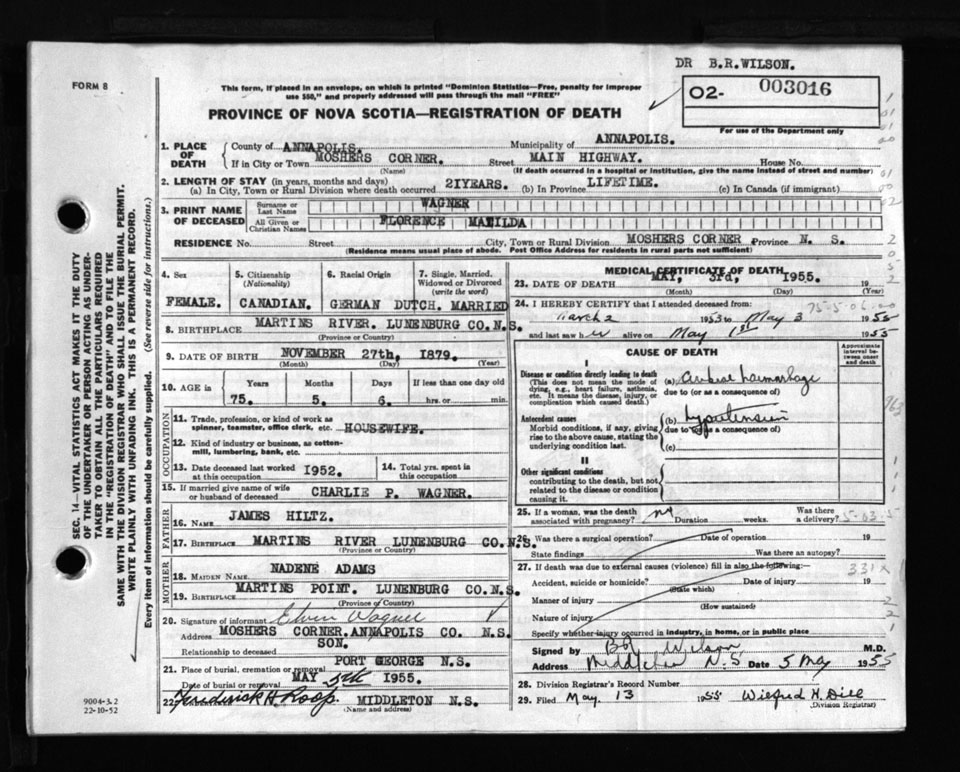 DR B.R.WILSON.
FORM 8
This form, if placed in an envelope, on which is printed "Dominion Statistics—Free, penalty for improper
use $50," and properly addressed will pass through the mail "FREE"
O2- 003016
For use of the Department only
PROVINCE OF NOVA SCOTIA—REGISTRATION OF DEATH
1. PLACE OF DEATH
County of ANNAPOLIS. Municipality of ANNAPOLIS.
If in City or Town MOSHERS CORNER. Street MAIN HIGHWAY. House No.
(Name) (If death occurred in a hospital or institution, give the name instead of street and number)
2. LENGTH OF STAY (in years, months and days)
(a) In City, Town or Rural Division where death occurred 2IYEARS. (b) In Province LIFETIME. (c) In Canada (if immigrant)
3. PRINT NAME OF DECEASED
Surname or Last Name WAGNER
All Given or Christian Names FLORENCE MATILDA
RESIDENCE No. Street City, Town or Rural Division MOSHERS CORNER Province N. S.
(Residence means usual place of abode. Post Office Address for residents in rural parts not sufficient)
4. Sex FEMALE.
5. Citizenship (Nationality) CANADIAN.
6. Racial Origin GERMAN DUTCH.
7. Single, Married, Widowed or Divorced (write the word) MARRIED
8. BIRTHPLACE MARTINS RIVER. LUNENBURG CO.N.S.
(Province or Country)
9. DATE OF BIRTH NOVEMBER 27th, I879.
(Month) (Day) (Year)
10. AGE in Years Months Days If less than one day old
75. 5. 6. hrs. or min.
OCCUPATION
11. Trade, profession, or kind of work as
spinner, teamster, office clerk, etc. HOUSEWIFE.
12. Kind of industry or business, as cotton-
mill, lumbering, bank, etc.
13. Date deceased last worked at this occupation I952.
14. Total yrs. spent in this occupation
15. If married give name of wife or husband of deceased CHARLIE P. WAGNER.
FATHER
16. NAME JAMES HILTZ.
17. BIRTHPLACE MARTINS RIVER LUNENBURG CO.N.S.
(Province or Country)
MOTHER
18. MAIDEN NAME NADENE ADAMS
19. BIRTHPLACE MARTINS POINT. LUNENBURG CO.N.S.
(Province or Country)
20. Signature of informant Elvin Wagner
Address MOSHERS CORNER.ANNAPOLIS CO. N.S.
Relationship to deceased SON.
21. Place of burial, cremation or removal PORT GEORGE N.S.
Date of burial or removal MAY 5th I955.
22. Frederick H. Roop. MIDDLETON N.S.
(Name and address)
MEDICAL CERTIFICATE OF DEATH
23. DATE OF DEATH MAY, 3rd, I955.
(Month) (Day) (Year)
24. I HEREBY CERTIFY that I attended deceased from:
March 2 1953 to May 3 1955
and last saw her alive on May 1st 1955
75-5-06
CAUSE OF DEATH
Approximate interval between onset and death
I
Disease or condition directly leading to death
(This does not mean the mode of
dying, e.g., heart failure, asthenia,
etc. It means the disease, injury, or
complication which caused death.)
(a) cerebral haemorrhage
due to (or as a consequence of)
Antecedent causes
Morbid conditions, if any, giving
rise to the above cause, stating the
underlying condition last.
(b) hypertension
due to (or as a consequence of)
(c)
II
Other significant conditions
contributing to the death, but not
related to the disease or condition
causing it.
25. If a woman, was the death associated with pregnancy? no Duration weeks. Was there a delivery?
5-03-5
26. Was there a surgical operation? Date of operation 19
State findings Was there an autopsy?
27. If death was due to external causes (violence) fill in also the following:—
331X
Accident, suicide or homicide? Date of injury 19
(State which)
Manner of injury
(How sustained)
Nature of injury
Specify whether injury occurred in industry, in home, or in public place
Signed by B R Wilson M.D.
Address Middleton N.S Date 5 May 1955
28. Division Registrar's Record Number
29. Filed May. 13 1955 Wilfred H. Dill
(Division Registrar)
SEC. 14—VITAL STATISTICS ACT MAKES IT THE DUTY
OF THE UNDERTAKER OR PERSON ACTING AS UNDER-
TAKER TO OBTAIN ALL THE PARTICULARS REQUIRED
IN THE "REGISTRATION OF DEATH" AND TO FILE THE
SAME WITH THE DIVISION REGISTRAR WHO SHALL ISSUE THE BURIAL PERMIT.
WRITE PLAINLY WITH UNFADING INK. THIS IS A PERMANENT RECORD.
Every item of information should be carefully supplied. (See reverse side for instructions.)
9004-3.2
22-10-52